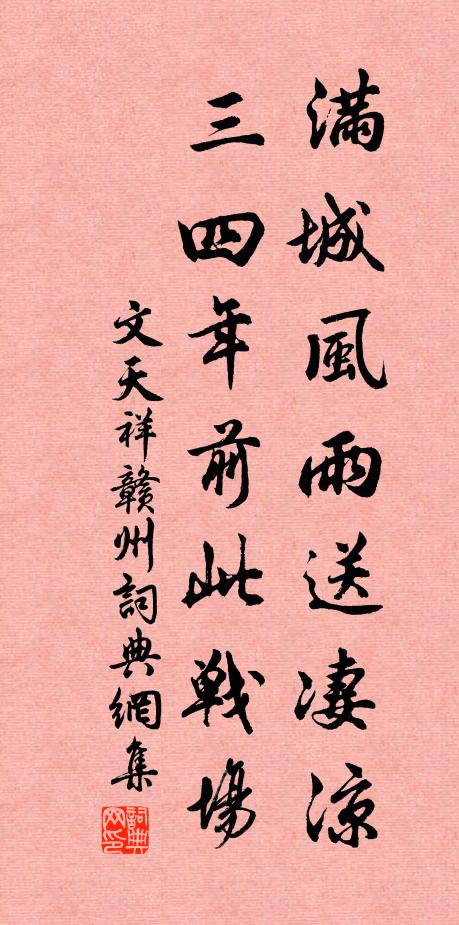 滿城風雨送凄涼
三四年前此戰場
文天祥贛州詞典網集
詞典网印